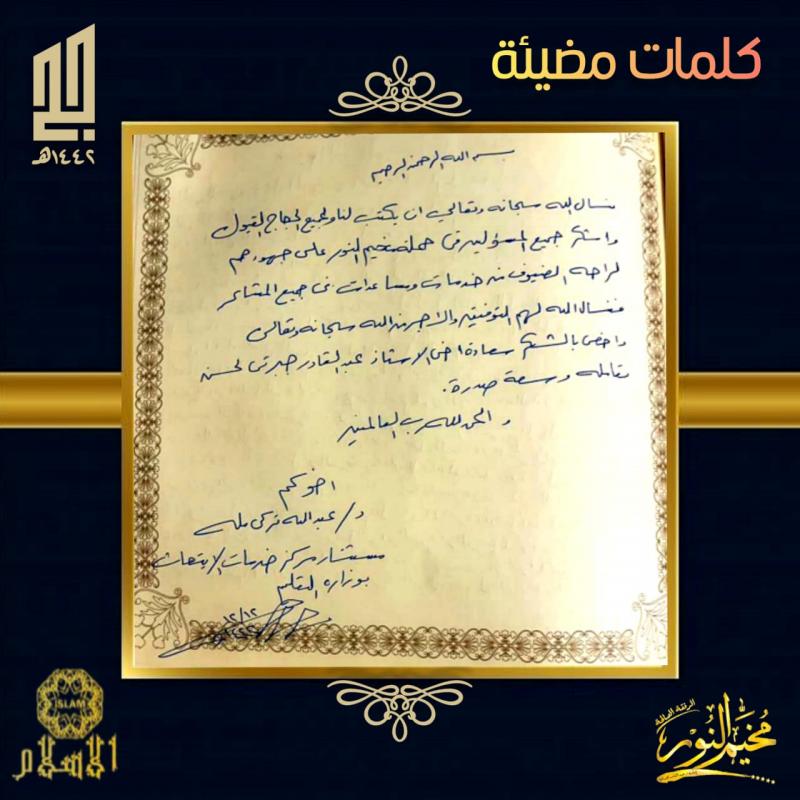 كلمات مضيئة
١٤٤٢هـ
بسم الله الرحمن الرحيم
نسال الله سبحانه وتعالى ان يكتب لنا ولجميع الحجاج القبول
واشكر جميع المسؤولين في حملة مخيم النور على جهودهم
لراحة الضيوف من خدمات ومساعدات في جميع المشاعر
فنسال الله لهم التوفيق والاجر من الله سبحانه وتعالى
واخص بالشكر سعادة اخي الاستاذ عبدالقادر جبرتي لحسن
تعامله وسعة صدره.
والحمد لله رب العالمين
اخوكم
د/ عبدالله تركي
مستشار مركز خدمات الابتعاث
بوزارة التعليم
١٢/١٢
ISLAM
الاسلام
مخيم النور